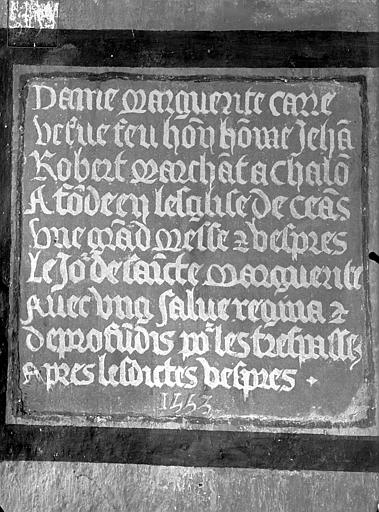 Dame marguerite carre
vefue feu hōn hōme Jehā
Robert marchāt a chalō
A fōde en lesglise de ceās
vne grād messe ⁊ vespres
Le Jor de saīcte marguerite
Auec vng salue regina ⁊
de profūdis por les trespasses
Apres lesdictes vespres
1553